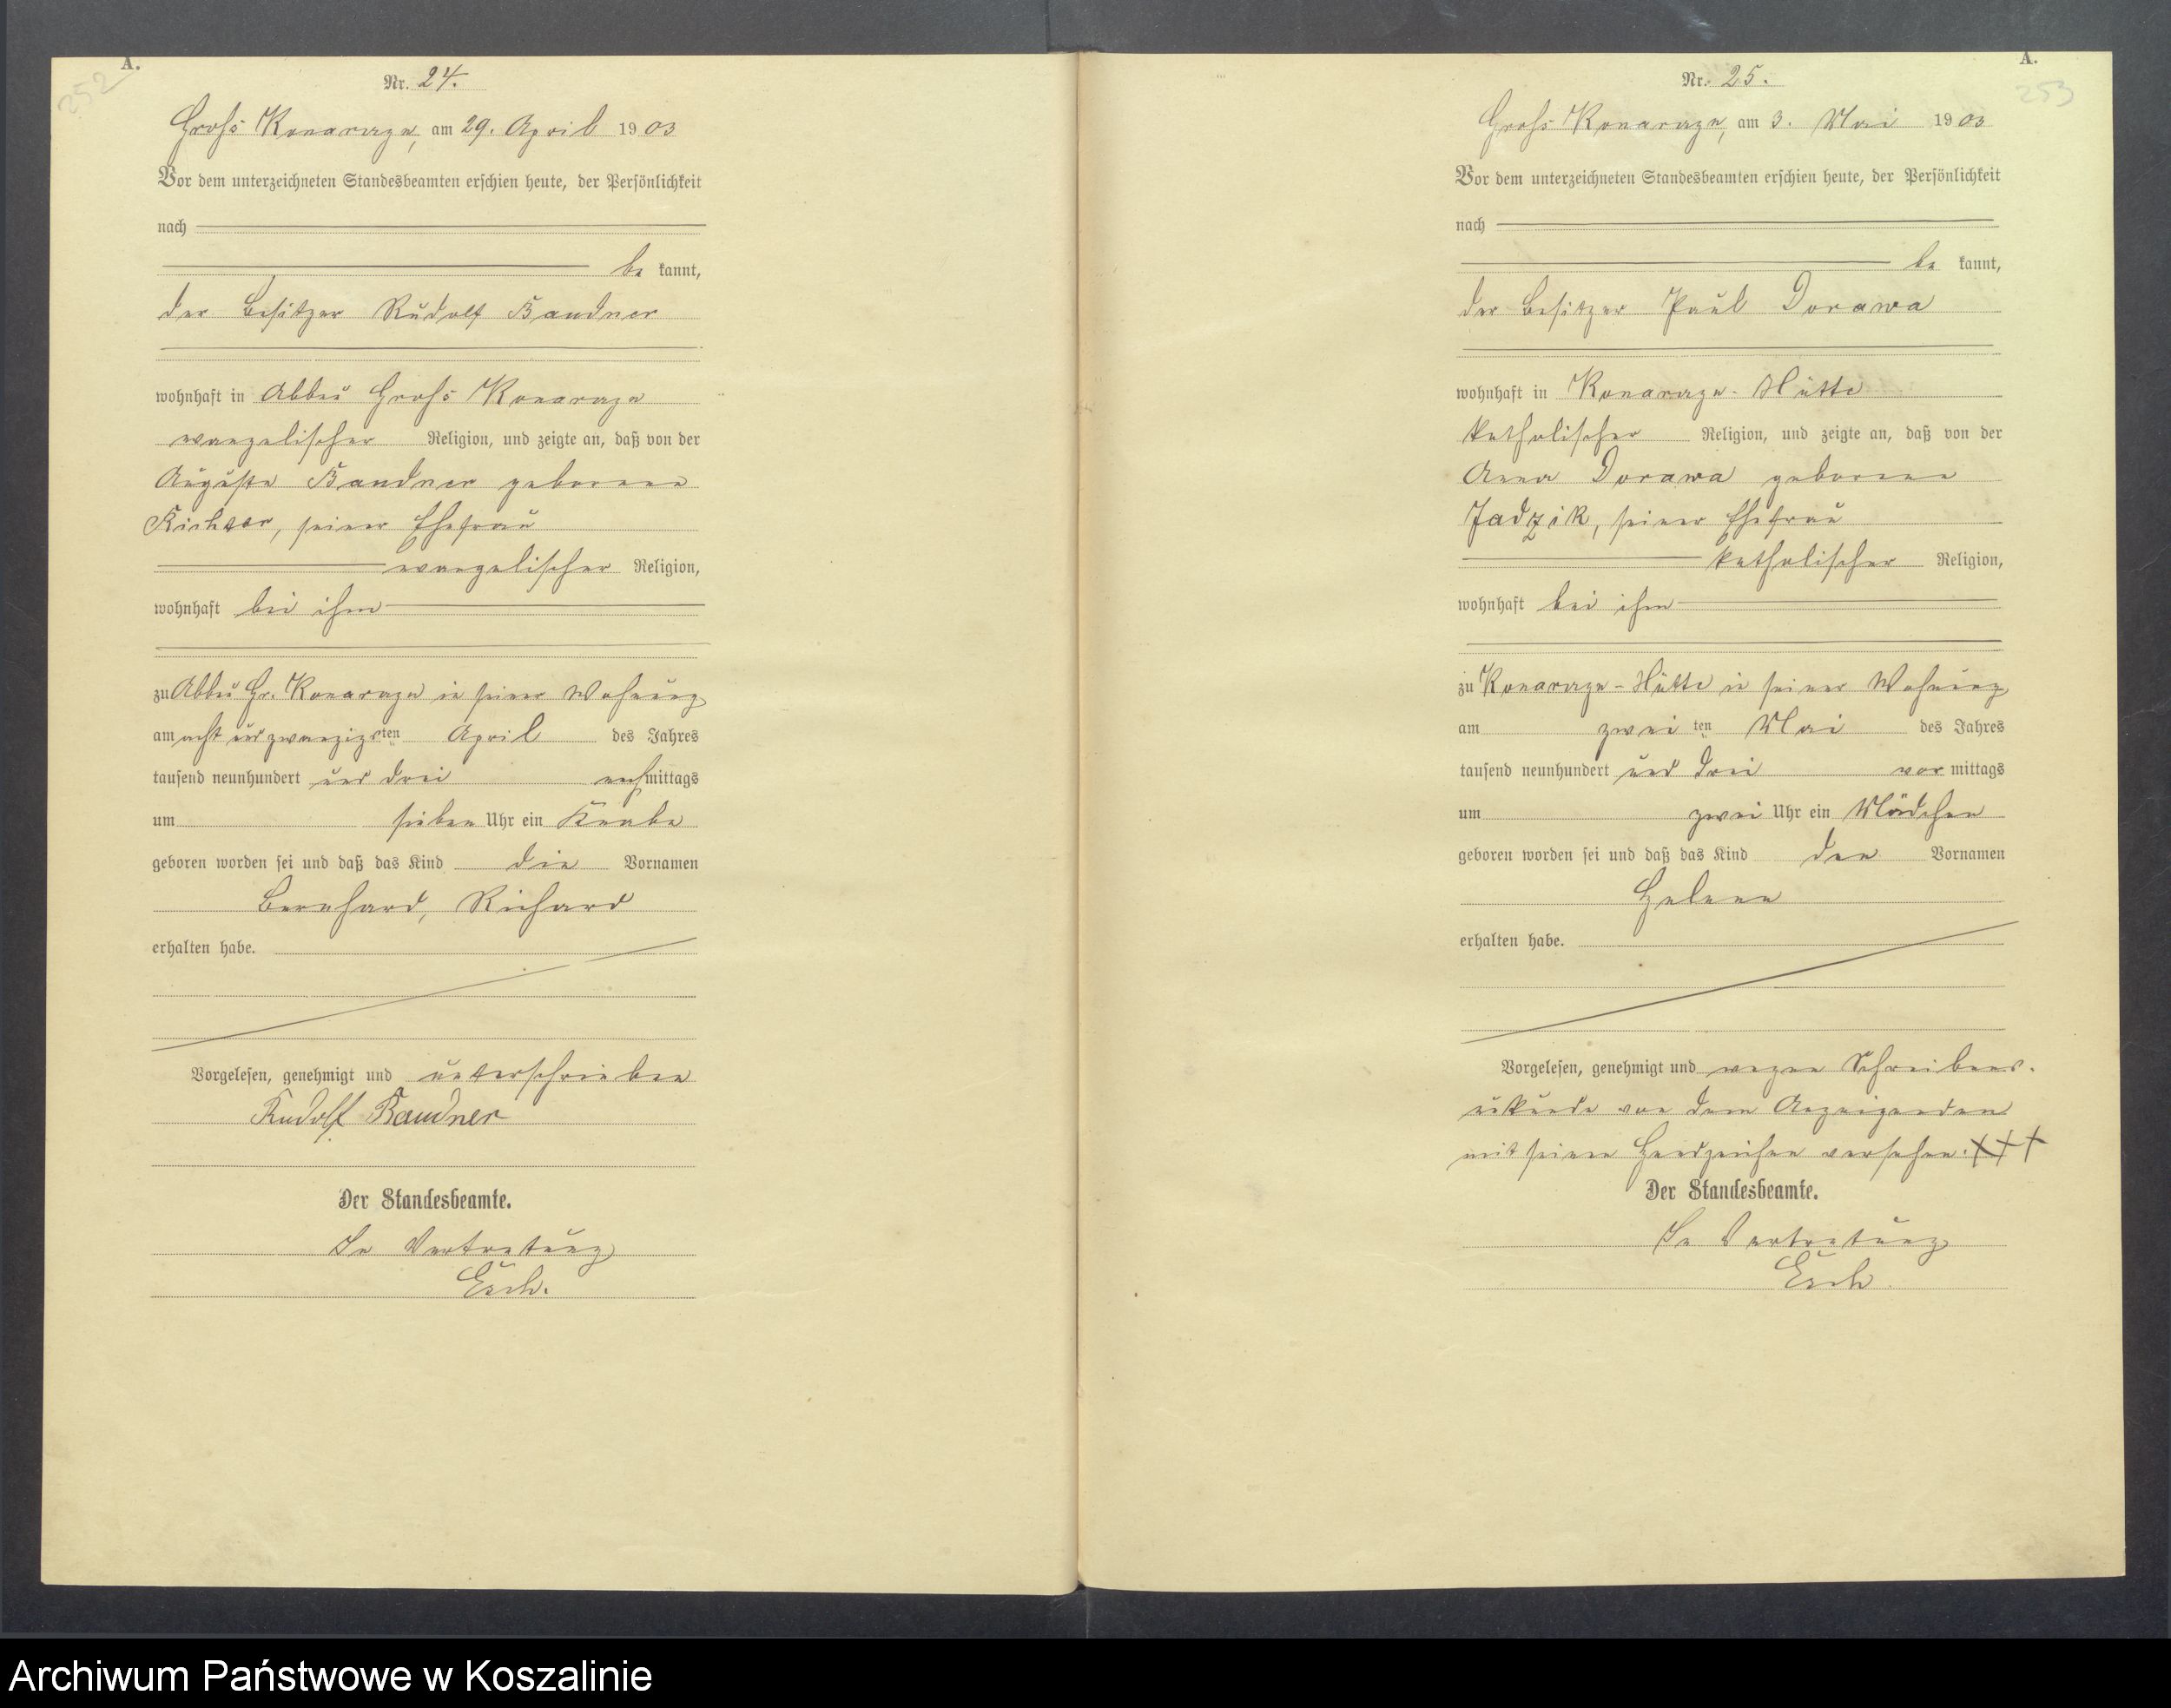 A.
252
Nr. 24.
Groß Konarzyn, am 29. April 1903
Vor dem unterzeichneten Standesbeamten erschien heute, der Persönlichkeit
nach
be kannt,
der Besitzer Rudolf Bandner
wohnhaft in Abbau Groß Konarzyn
evangelischer Religion, und zeigte an, daß von der
Auguste Bandner geborene
seiner Ehefrau
evangelischer Religion,
wohnhaft bei ihm
zu Abbau Gr. Konarzyn in seiner Wohnung
am acht und zwanzigsten April des Jahres
tausend neunhundert und drei nachmittags
um sieben Uhr ein Knabe
geboren worden sei und daß das Kind die Vornamen
Bernhard, Richard
erhalten habe.
Vorgelesen, genehmigt und unterschrieben
Rudolf Bandner
Der Standesbeamte.
In Vertretung
Esch.
A.
253
Nr. 25.
Groß Konarzyn, am 3. Mai 1903
Vor dem unterzeichneten Standesbeamten erschien heute, der Persönlichkeit
nach
be kannt,
der Besitzer Paul Dorawa
wohnhaft in Konarzyn-Hütte
katholischer Religion, und zeigte an, daß von der
Anna Dorawa geborene
Jadzik, seiner Ehefrau
katholischer Religion,
wohnhaft bei ihm
zu Konarzyn-Hütte in seiner Wohnung
am zwei ten Mai des Jahres
tausend neunhundert und drei vor mittags
um zwei Uhr ein Mädchen
geboren worden sei und daß das Kind den Vornamen
Helene
erhalten habe.
Vorgelesen, genehmigt und wegen Schreibens-
unkunde von dem Anzeigenden
mit seinen Handzeichen versehen. +++
Der Standesbeamte.
In Vertretung
Esch
Archiwum Państwowe w Koszalinie